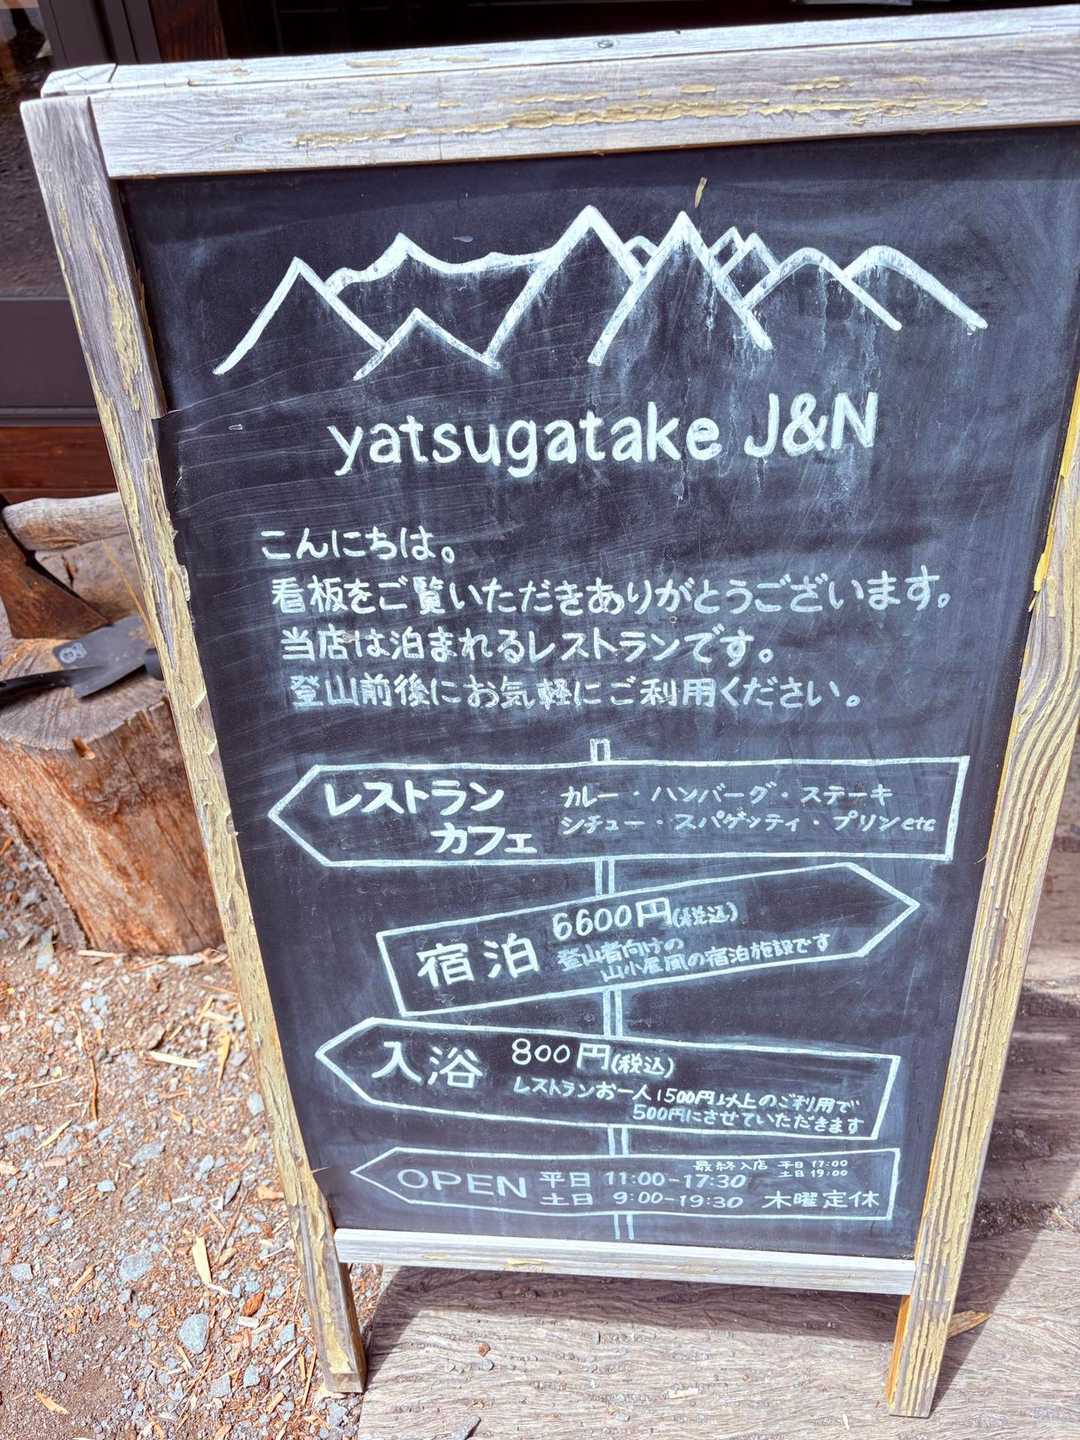 yatsugatake J&N
こんにちは。
看板をご覧いただきありがとうございます。
当店は泊まれるレストランです。
登山前後にお気軽にご利用ください。
レストラン
カフェ
カレー・ハンバーグ・ステーキ
シチュー・スパゲッティ・プリンetc
宿泊
6600円(税込)
登山者向けの
山小屋風の宿泊施設です
入浴
800円(税込)
レストランお一人1500円以上のご利用で
500円にさせていただきます
OPEN
最終入店 平日 17:00
土日 19:00
平日 11:00-17:30
土日 9:00-19:30 木曜定休